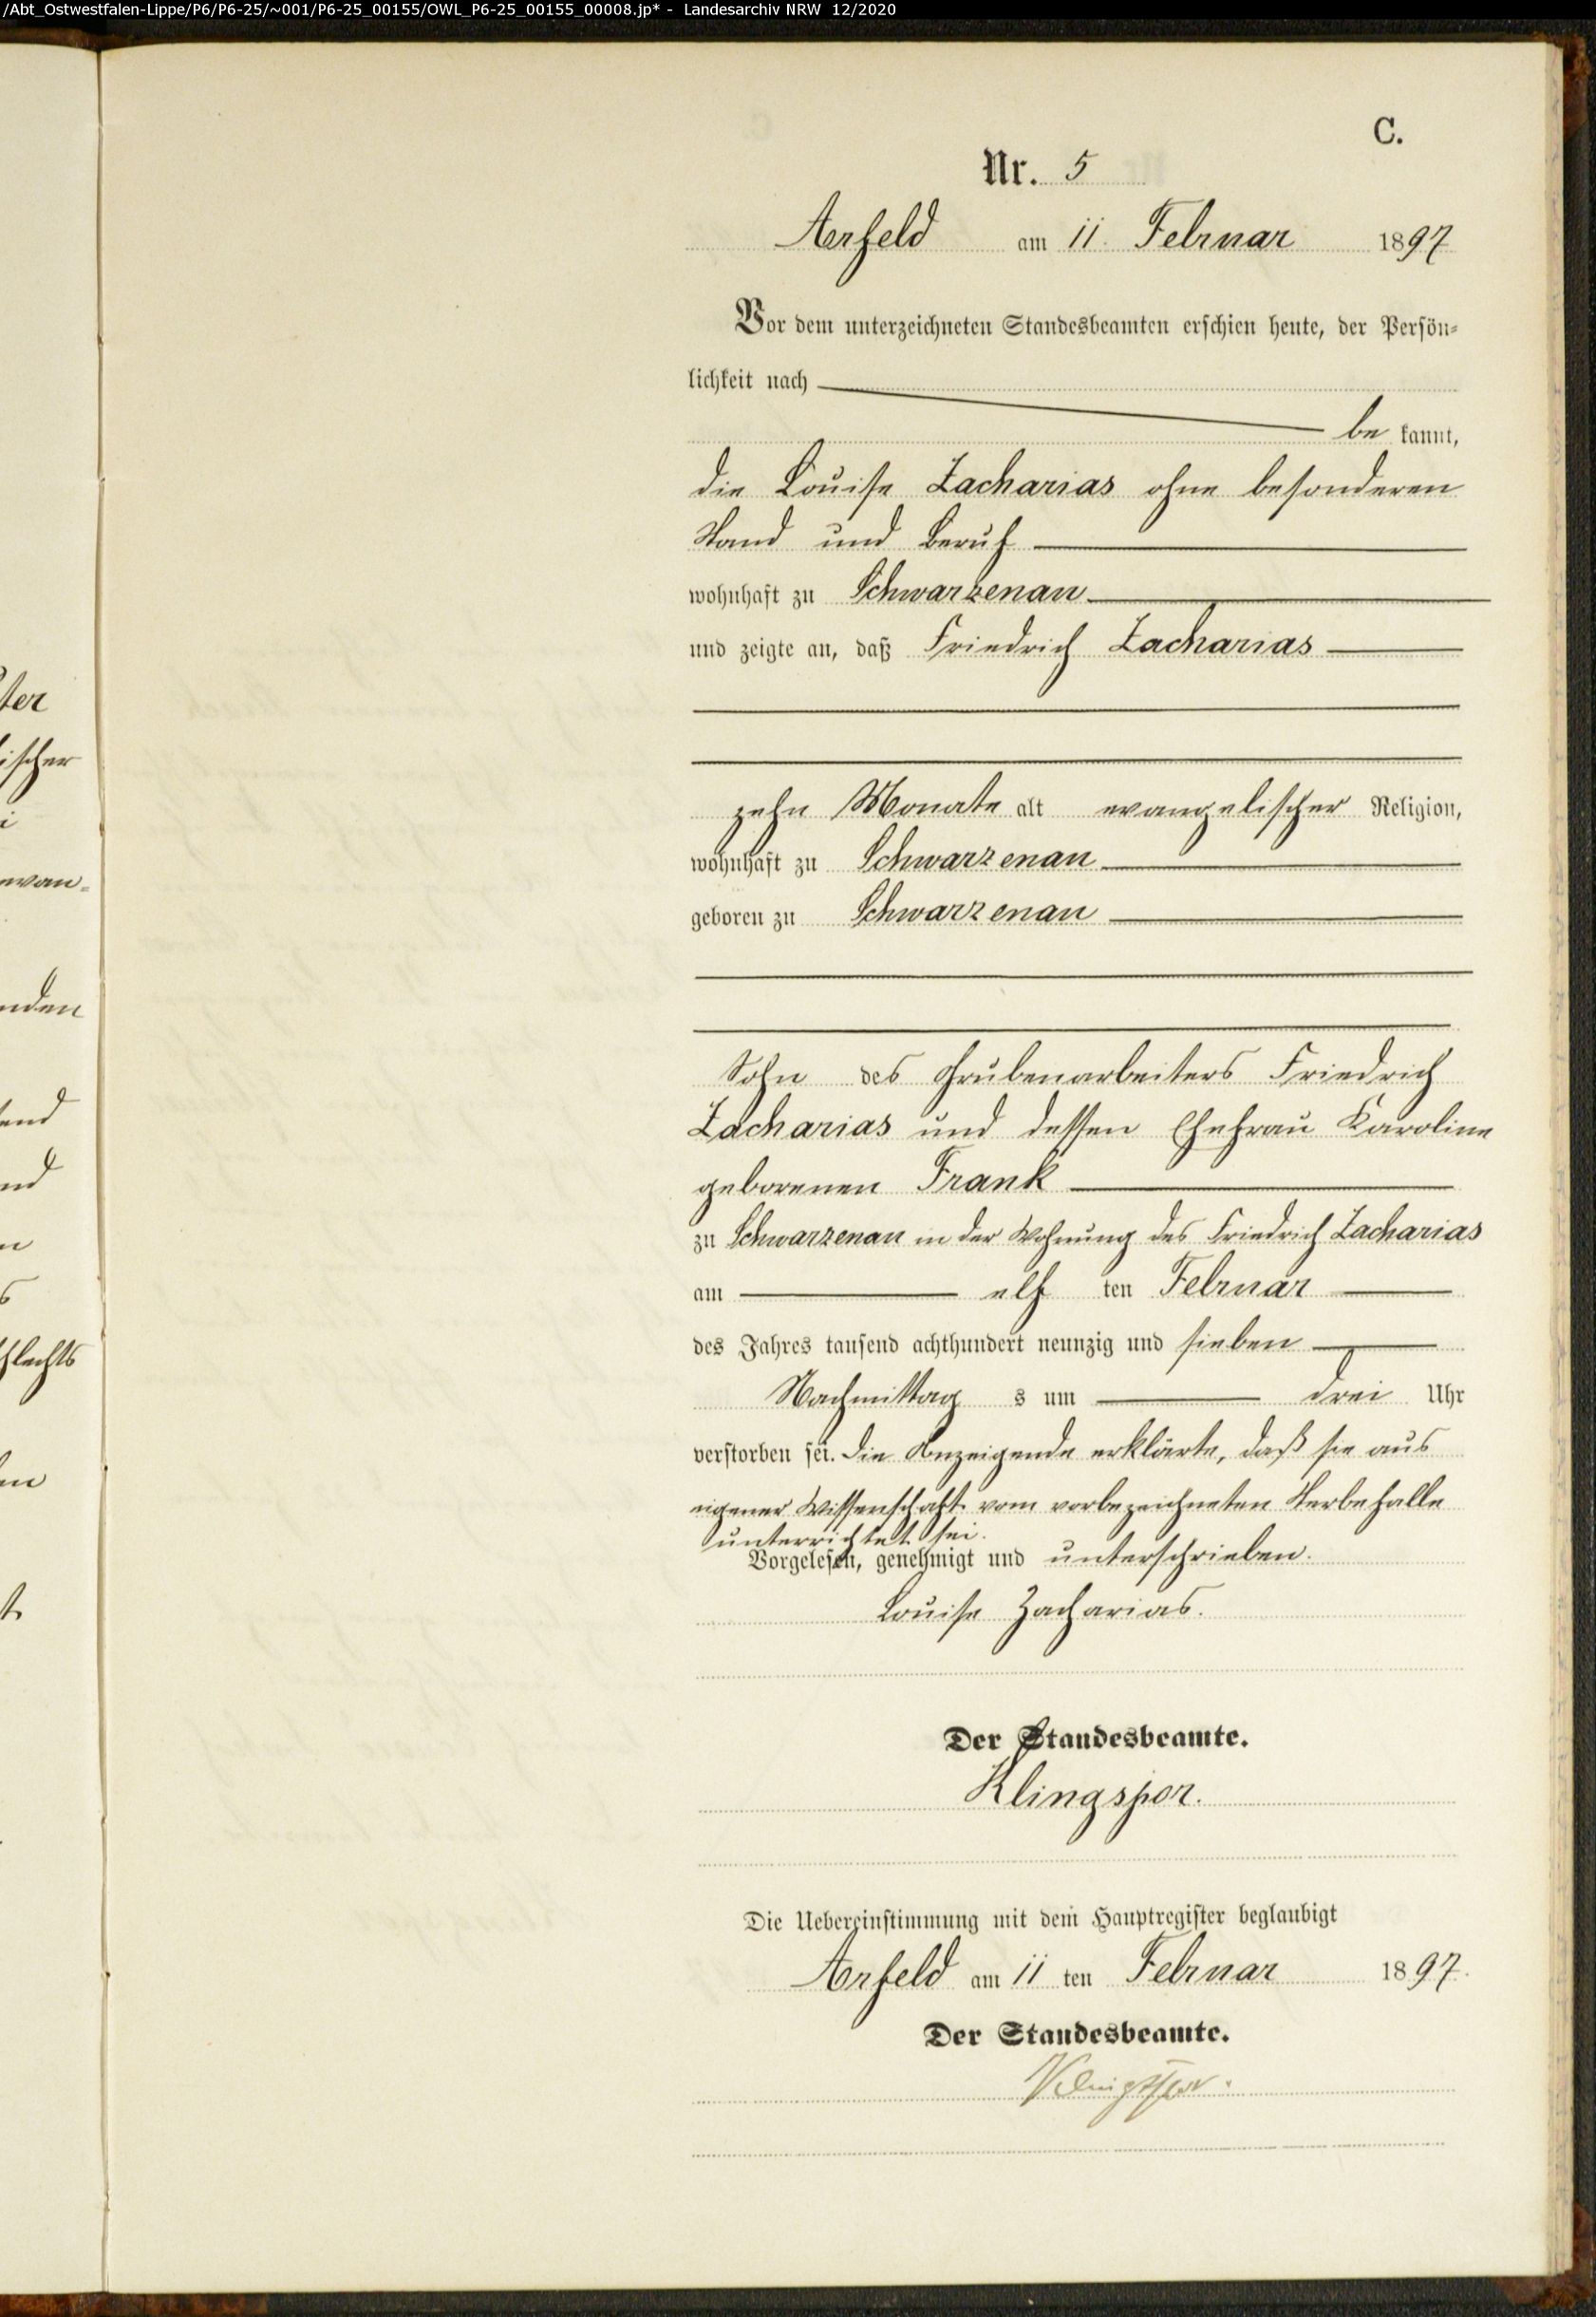 /Abt_Ostwestfalen-Lippe/P6/P6-25/~001/P6-25_00155/OWL_P6-25_00155_00008.jp* - Landesarchiv NRW 12/2020
C.
Nr. 5
Arfeld am 11. Februar 1897
Vor dem unterzeichneten Standesbeamten erschien heute, der Persön-
lichkeit nach
be kannt,
die Louise Zacharias ohne besonderen
Stand und Beruf
wohnhaft zu Schwarzenau
und zeigte an, daß Friedrich Zacharias
zehn Monate alt evangelischer Religion,
wohnhaft zu Schwarzenau
geboren zu Schwarzenau
Sohn des Grubenarbeiters Friedrich
Zacharias und dessen Ehefrau Karoline
geborenen Frank
zu Schwarzenau in der Wohnung des Friedrich Zacharias
am elf ten Februar
des Jahres tausend achthundert neunzig und sieben
Nachmittag s um drei Uhr
verstorben sei. Die Anzeigende erklärte, daß sie aus
eigener Wissenschaft vom vorbezeichneten Sterbefalle
unterrichtet sei.
Vorgelesen, genehmigt und unterschrieben.
Louise Zacharias.
Der Standesbeamte.
Klingspor.
Die Uebereinstimmung mit dem Hauptregister beglaubigt
Arfeld am 11 ten Februar 1897.
Der Standesbeamte.
Klingspor.
ter
ischer
i
evan-
nden
end
nd
n
s
hlechts
en
t.